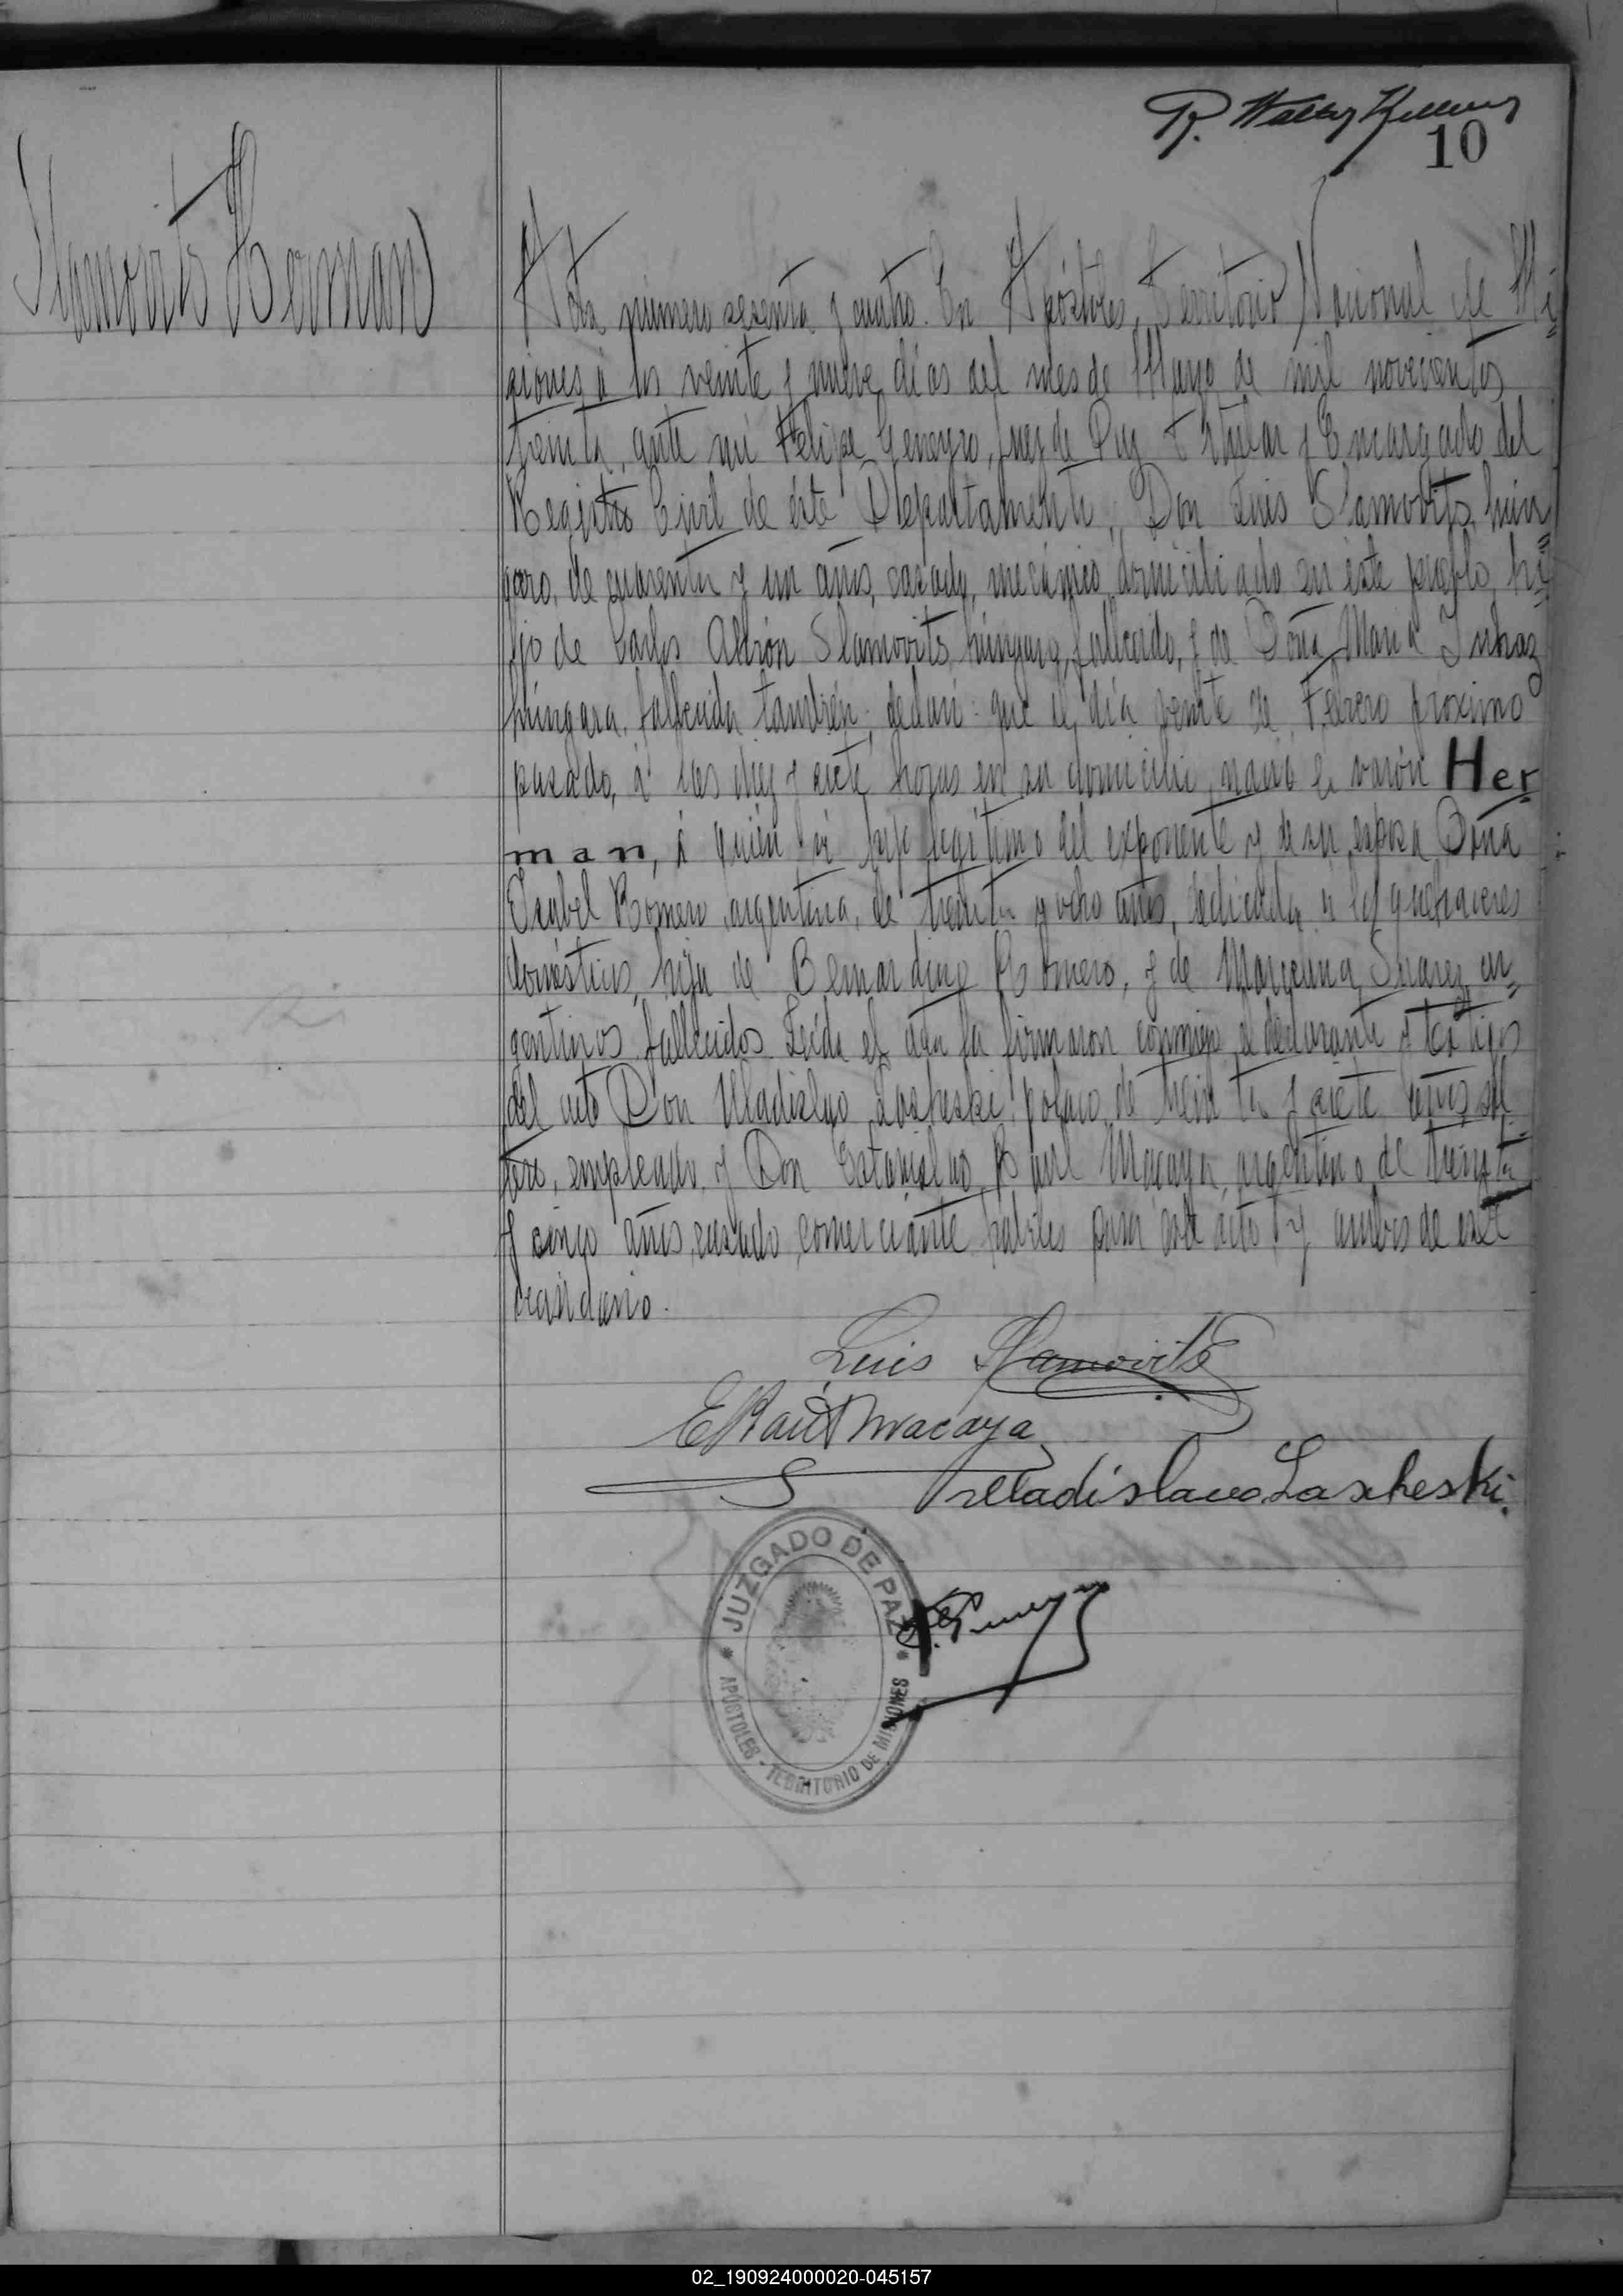 10
Slamovits Herman
Acta número sesenta y cuatro. En Apóstoles, Territorio Nacional de Mi=
siones, á los veinte y nueve días del mes de Mayo de mil novecientos
treinta, ante mi Felipe Juez de Paz Titular y Encargado del
Registro Civil de éste Departamento, Don Luis Slamovits, hún=
garo, de cuarenta y un años, casado, mecánico, domiciliado en éste pueblo, hi=
jo de Carlos Slamovits, húngaro, fallecido, y de Doña Maria
húngara, fallecida también; declaró: que el día veinte de Febrero próximo
pasado, á las diez y siete horas en su domicilio, nació el varón Her
man, á quién hijo legítimo del exponente y de su esposa Doña
Isabel Romero, argentina, de treinta y ocho años, dedicada a los quehaceres
domésticos, hija de Bernardino Romero, y de Marcelina Suarez, ar=
gentinos, fallecidos. Leída el acta la firmaron conmigo, el declarante y testigos
del acto Don Uladislao Lascheski, polaco, de treinta y siete años, sol
tero, empleado, y Don Estanislao Raúl Macaya, argentino, de treinta
y cinco años, casado, comerciante, hábiles para este acto y ambos de este
vecindario.
Luis Slamovits
E Raúl Macaya
Uladislavo Lascheski.
JUZGADO DE PAZ
APÓSTOLES - TERRITORIO DE MISIONES
02_190924000020-045157